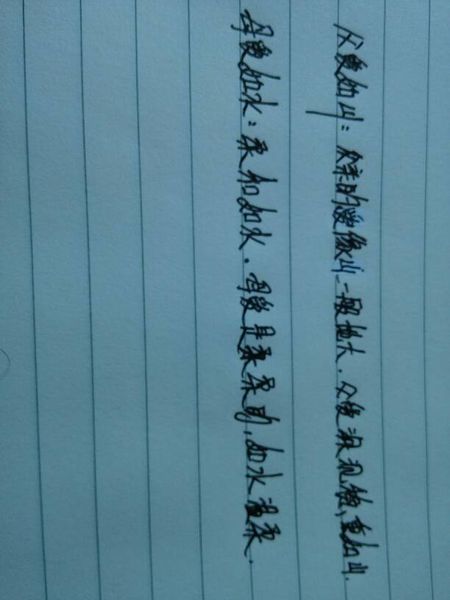 父爱如山：父亲的爱像山一般伟大.父爱深沉,重如山.
母爱如水：柔和如水.母爱是柔柔的,如水温柔.